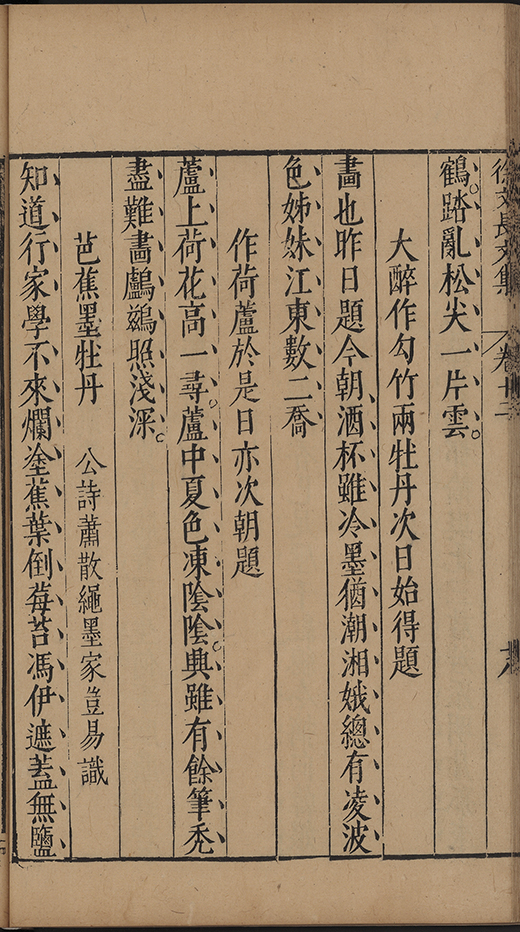 徐文長文集 卷十二
鶴踏亂松尖一片雲
大醉作勾竹兩牡丹次日始得題
畵也昨日題今朝酒杯雖冷墨猶潮湘娥總有凌波
色姊妹江東數二喬
作荷蘆於是日亦次朝題
蘆上荷花高一尋蘆中夏色凍陰陰興雖有餘筆禿
盡難畵鸕鷀照淺深
芭蕉墨牡丹 公詩蕭散繩墨家豈易識
知道行家學不來爛塗蕉葉倒莓苔馮伊遮蓋無鹽